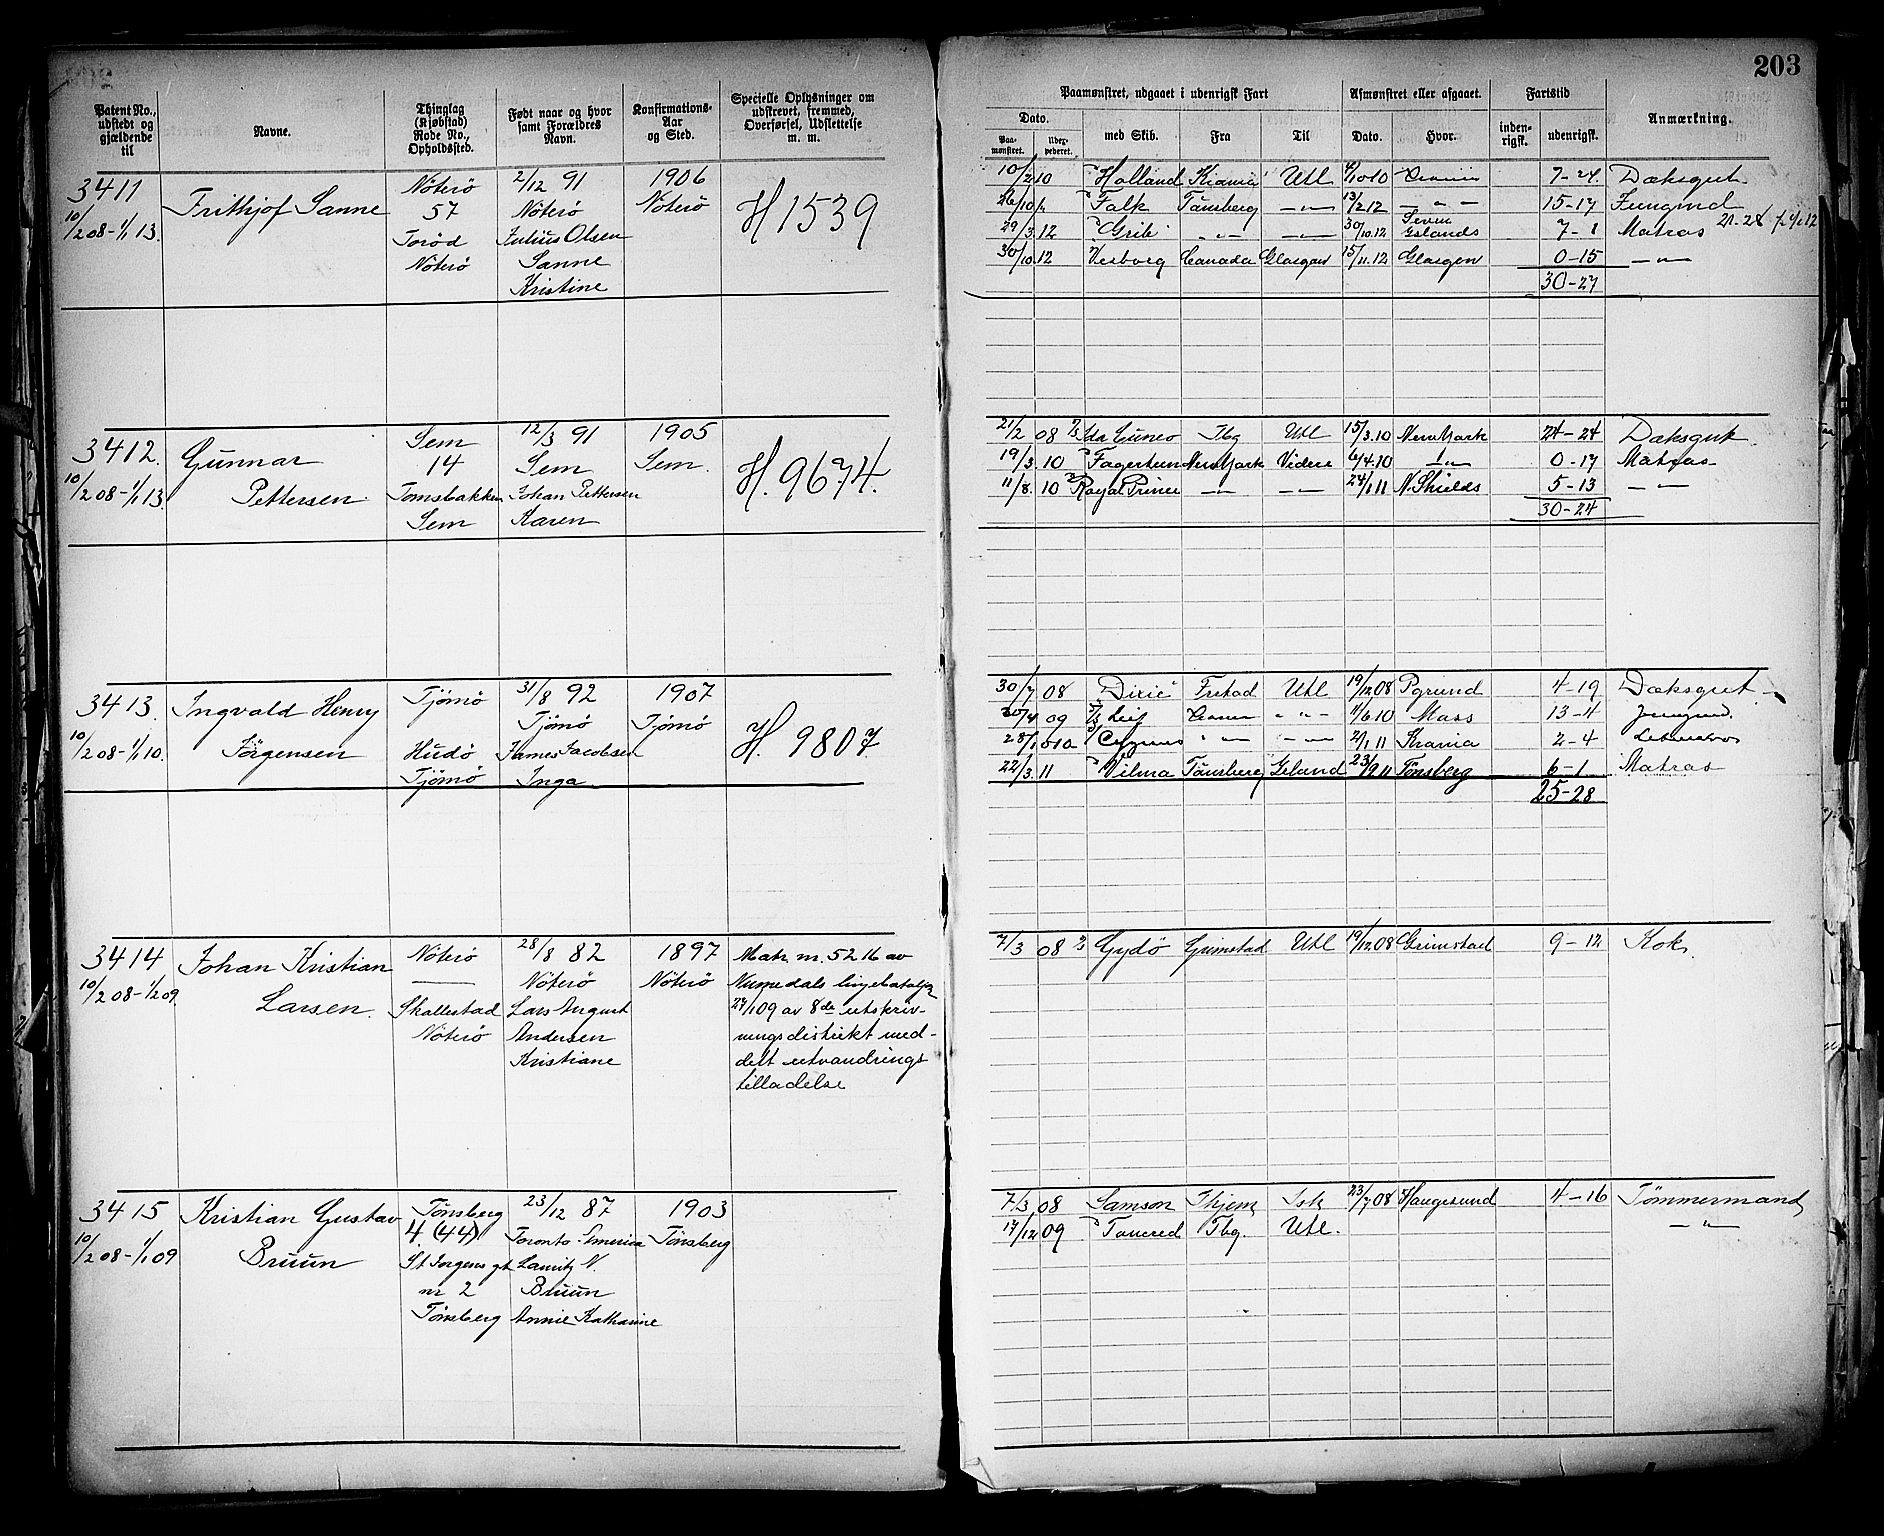 203
Patent No., udstedt og gjældende til
Navne.
Thinglag (Kjøbstad) Rode No., Opholdssted.
Født naar og hvor samt Forældres Navn.
Konfirmations-Aar og Sted.
Specielle Oplysninger om udskrevet, fremmed, Overførsel, Udslettelse m. m.
Paamønstret, udgaaet i udenrigsk Fart
Afmønstret eller afgaaet.
Fartstid
Anmærkning.
Dato.
Paamønstret.
med Skib.
Fra
Til
Dato.
Hvor.
indenrigsk.
udenrigsk.
3411 Frithjof Sanne Nöterö 2/12 91 1906 H 1539
10/2 08-1/1 13. 57 Nöterö Nöterö
Torød Julius Olsen
Nöterö Sanne
Kristine
10/2 10 Holland Krania Utl 10-10 7-24. Dæksgut
26/10 Falk Tönsberg -„- 13/2 12 -„- 15-17 Jungmd
29/3 12 Grib -„- -„- 30/10.12 Seven Islands 7-1 Matros
30/10 12 Verborg Canada Glasgow 15/11.12 Glasgow 0-15 -„-
30-27
3412. Gunnar Pettersen Sem 12/3 91 1905 H. 9674.
10/2 08-1/1 13. 14 Sem Sem.
Tomsbakken Johan Pettersen
Sem Karen
21/2 08 Ida Cuneo Tbg Utl 15/3.10 New York 24-24 Dæksgut.
19/3 10 Fagertun New York Videre 6/4.10 -„- 0-17 Matros
11/8. 10 Royal Prince -„- -„- 24/1 11 N. Shields 5-13 -„-
30-24
3413. Ingvald Henry Jörgensen Tjömö 31/8 92 1907 H. 9807.
10/2 08-1/1 10. Tjömö Tjömö
Hudö James Jacobsen
Tjömö Inga
30/7 08 Dixie Frstad Utl 19/12 08 Pgrund 4-19 Dæksgut
30/4 09 Leif -„- 1/6 10 Mass 13-4 Jungmd.
28/10 10 Cygnus -„- -„- 2/1 11 Krania 2-4 Letmatros
22/3. 11 Vilma Tönsberg Island 23/9 11 Tönsberg 6-1 Matros
25-28
3414 Johan Kristian Larsen. Nöterö 28/8 82 1897
10/2 08-1/2 09. Nöterö Nöterö
Skallestad Lars August
Nöterö Andersen
Kristiane
Matr. nr. 5216 av
Numedals linjebataljon
27/1 09 av 8de utskriv-
ningsdistrikt med-
delt utvandrings
tilladelse
7/3 08 Gydö Grimstad Utl 19/12 08 Grimstad 9-12 Kok.
3415 Kristian Gustav Bruun Tönsberg 23/12 87 1903
10/2 08-1/1 09 4. (44) Toronto. America Tönsberg
St. Jorgens gt. Lauritz N.
nr 2 Bruun
Tönsberg Annie Katharine
7/3 08 Samson Thjem Isk 23/7 08 Haugesund 4-16 Tömmermand
17/12 09 Tancred Tbg. Utl. -„-